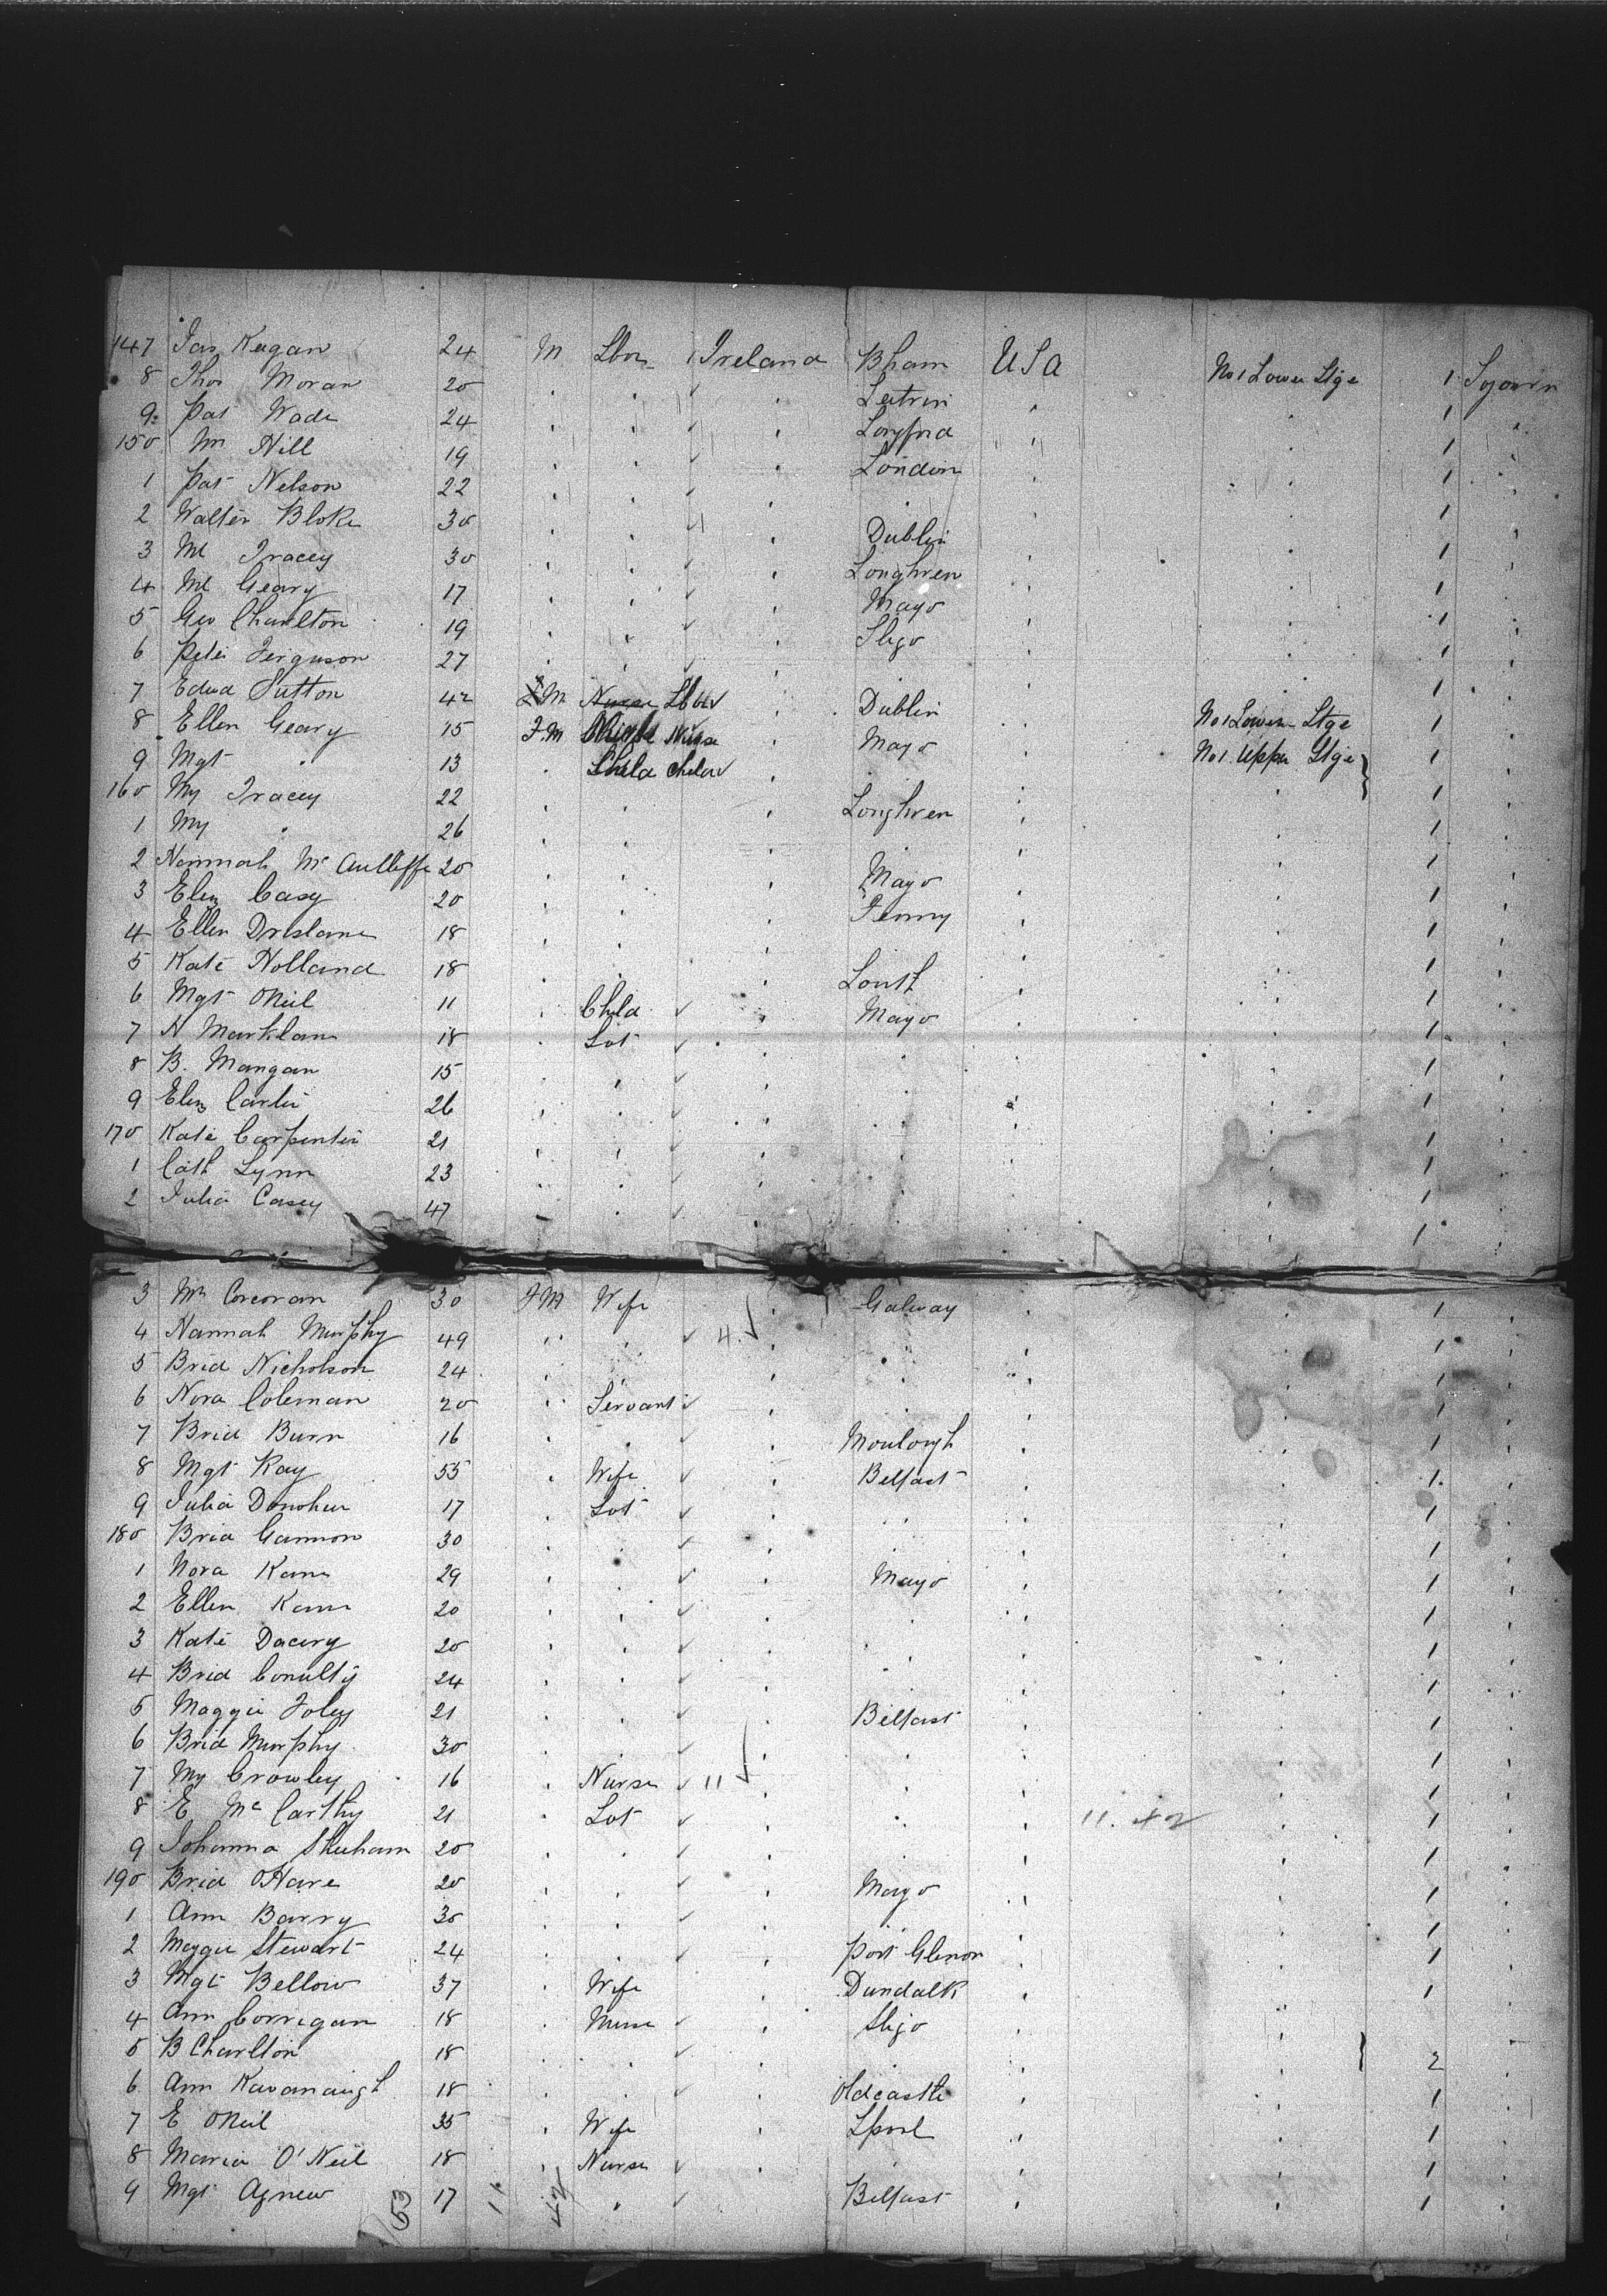 147 Jas Keegan 24 M Lbr Ireland Bham USA No 1 Lower Stge 1 Sojourn
8 Thos Moran 20 " " " Leitrim " " 1 "
9 Pat Wade 24 " " " Longford " " 1 "
150 Wm Hill 19 " " " London " " 1 "
1 Pat Nelson 22 " " " " " " 1 "
2 Walter Bloke 30 " " " Dublin " " 1 "
3 Ml Tracey 30 " " " Loughren " " 1 "
4 Ml Geary 17 " " " Mayo " " 1 "
5 Geo Charlton 19 " " " Sligo " " 1 "
6 Peter Ferguson 27 " " " " " 1 "
7 Edwd Sutton 42 M Nurse Lbr " Dublin No 1 Lower Stge 1
8 Ellen Geary 15 F.M Nurse " Mayo No 1 Upper Stge 1
9 Mgt " 13 " Child Child " " 1
160 My Tracey 22 " " " Loughren " " 1 "
1 My " 26 " " " " " 1 "
2 Hannah McAuliffe 20 " " " Mayo " " 1 "
3 Eliz Casy 20 " " " Fenny " " 1 "
4 Ellen Drislane 18 " " " " " 1 "
5 Kate Holland 18 " " " Louth " " 1 "
6 Mgt ONeil 11 " Child " Mayo " " 1 "
7 H Marklan 18 " Lot " " " " 1 "
8 B. Mangan 15 " " " " " " 1 "
9 Eliz Carlin 26 " " " " " " 1 "
170 Kate Carpenter 21 " " " " " " 1 "
1 Cath Lynn 23 " " " " " " 1 "
2 Julia Casey 47 " " " " " " 1 "
3 Mr Corcoran 30 FM Wife " Galway " " 1 "
4 Hannah Murphy 49 " " 4 " " " " 1 "
5 Brid Nicholson 24 " " " " " " 1 "
6 Nora Coleman 20 " Servant " " " " 1 "
7 Brid Burn 16 " " " Moulough " " 1 "
8 Mgt Kay 55 " Wife " Belfast " " 1 "
9 Julia Donohue 17 " Lot " " " " 1 "
180 Brid Gannon 30 " " " " " " 1 "
1 Nora Kane 29 " " " Mayo " " 1 "
2 Ellen Kane 20 " " " " " " 1 "
3 Kate Dacery 20 " " " " " " 1 "
4 Brid Conulty 24 " " " " " " 1 "
5 Maggie Foley 21 " " " Belfast " " 1 "
6 Brid Murphy 30 " " " " " " 1 "
7 My Crowley 16 " Nurse 11 " " " " 1 "
8 E McCarthy 21 " Lot " " " 11. 42 " 1 "
9 Johanna Sheehan 20 " " " " " " 1 "
190 Brid OHare 20 " " " Mayo " " 1 "
1 Ann Barry 30 " " " " " " 1 "
2 Maggie Stewart 24 " " " Port Glenon " " 1 "
3 Mgt Bellow 37 " Wife " Dundalk " " 1 "
4 Ann Corrigan 18 " Nurse " Sligo " "
5 B Charlton 18 " " " " " 2 "
6 Ann Kavanaugh 18 " " " Oldcastle " " 1 "
7 E ONeil 35 " Wife " Lpool " " 1 "
8 Maria O'Neil 18 " Nurse " " " 1 "
9 Mgt Agnew 17 " " " Belfast " " 1 "
53 11 42